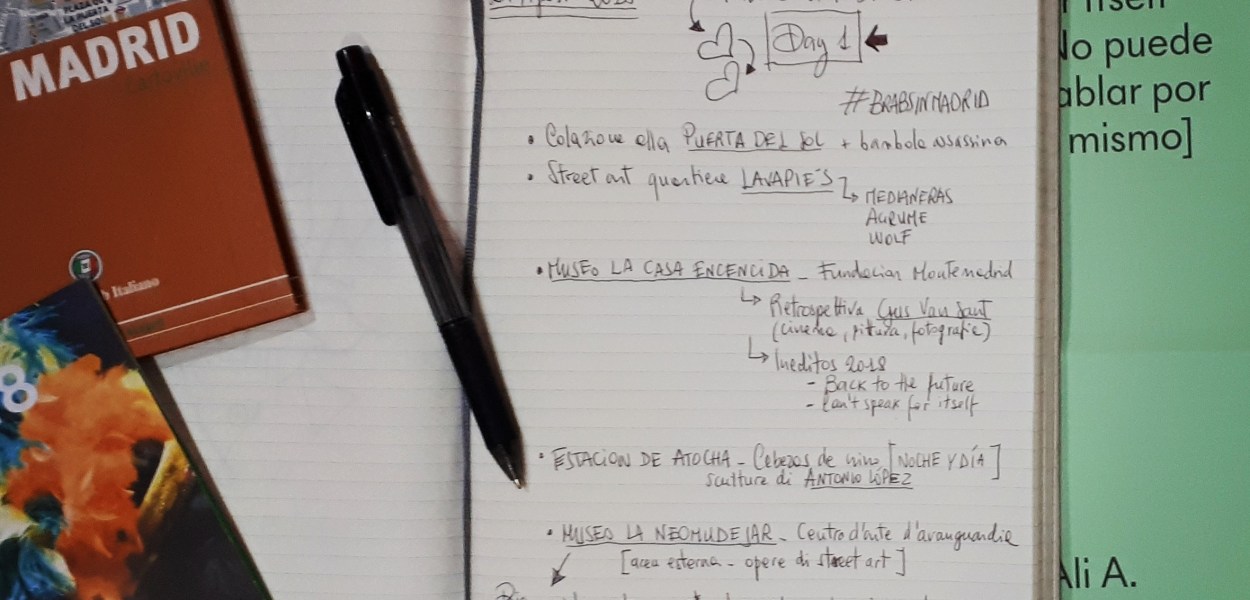 PLAZA DE
LA PUERTA
DEL SOL
MADRID
Italiano
8
2018
Day 1
#BRABSINMADRID
• Colazione alla PUERTA DEL SOL + bambola assassina
• Street art quartiere LAVAPIÉS
MEDIANERAS
AGRUME
WOLF
• MUSEO LA CASA ENCENCIDA - Fundacion Montemadrid
Retrospettiva Gus Van Sant
(cinema, pittura, fotografie)
Ineditos 2018
- Back to the future
- Can't speak for itself
• ESTACION DE ATOCHA - Cabezas de nino [NOCHE Y DÍA]
sculture di ANTONIO LÓPEZ
• MUSEO LA NEOMUDEJAR - Centro d'arte d'avanguardia
[area esterna - opere di street art]
itself
No puede
ablar por
mismo]
Ali A.